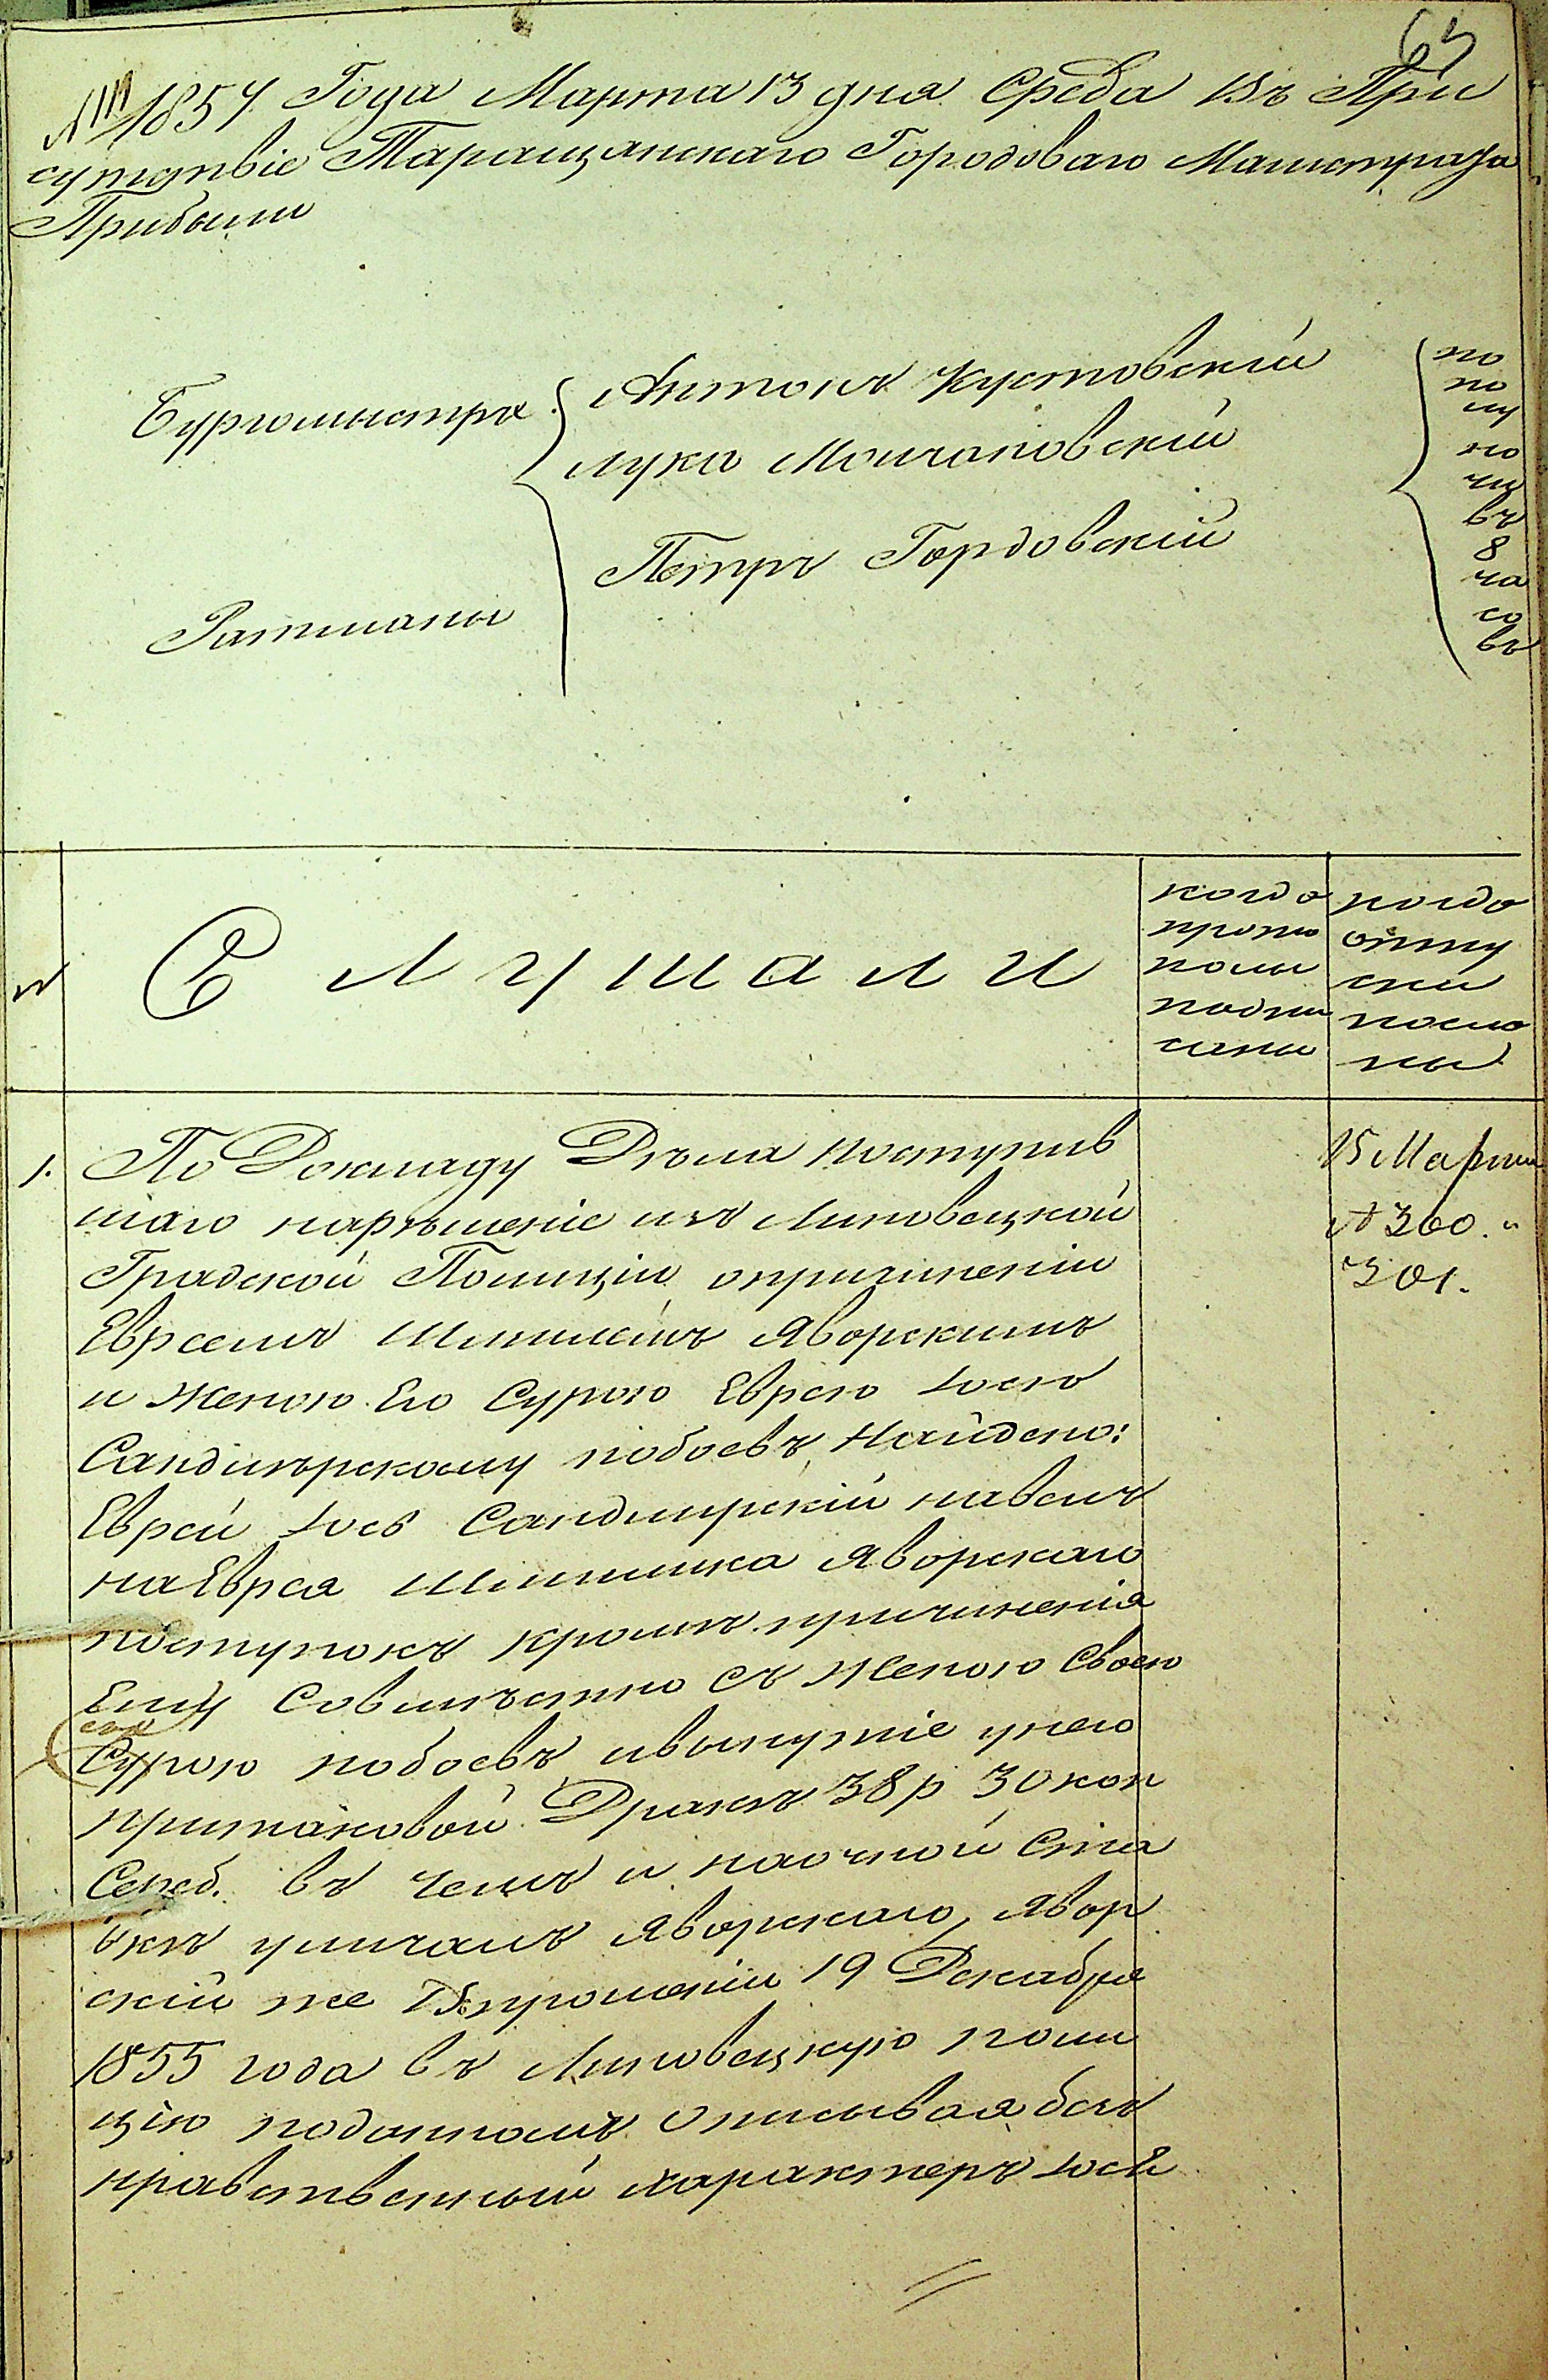 63
1857 Года Марта 13 дня Среда Въ При
сутствіе Таращанскаго Городоваго Магистрата
Прибыли
Бургомистра
Антонъ Кустовскій
Лука Молчановскій
Петръ Гордовскій
Ратманы
по
по
лу
но
чи
въ
8
ча
со
въ
№
Слушали
когда
прото
колы
подпи
саны
когда
отпу
ски
посла
ны
1.
По Докладу Дѣла поступив
шаго нарѣшеніе изъ Липовецкой
Градской Полиціи опричиненіи
Евреемъ Шмилемъ Яворскимъ
и Женою Его Сурою Еврею Іосю
Сандимѣрскому побоевъ, Найдено:
Еврей Іось Сандмирскій навелъ
наЕврея Шмилика Яворскаго
поступокъ кромѣ причиненія
Ему Совмѣстно съ Женою Своею
Сурою побоевъ, ивынутіе унего
притаковой Дракѣ 38 р 30 коп
Сереб. въ чемъ и наочной Ста
вкѣ уличалъ Яворскаго, Явор
скій же Впрошеніи 19 Декабря
1855 года въ Липовецкую поли
цію поданномъ Описывая без
нравственный характеръ Іося
15 Марта
№ 360. и
361.